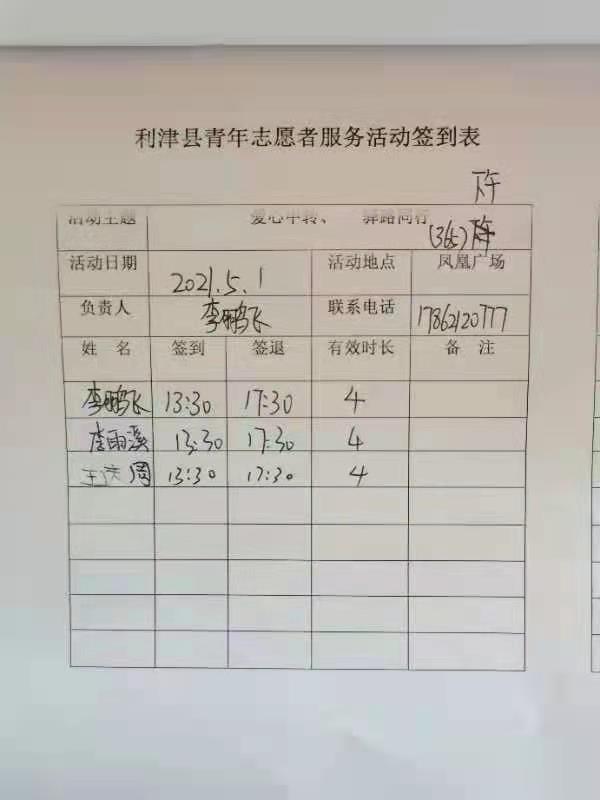 利津县青年志愿者服务活动签到表
下午
活动主题 爱心中转、 驿路同行 (365)
活动日期 2021.5.1 活动地点 凤凰广场
负责人 李鹏飞 联系电话 17862120777
姓 名 签到 签退 有效时长 备 注
李鹏飞 13:30 17:30 4
李雨溪 13:30 17:30 4
13:30 17:30 4